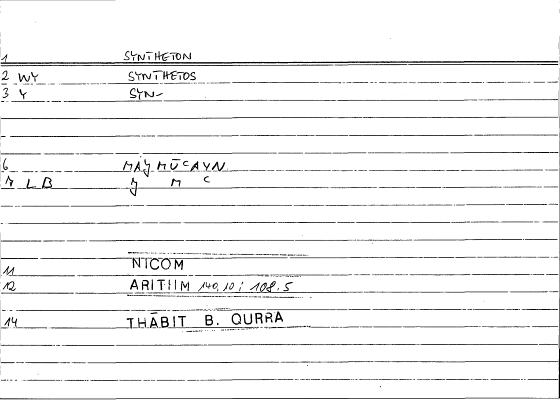 1 SYNTHETON
2 WY SYNTHETOS
3 Y SYN-
6 MAJMŪCAYN
7 LB J M C
11 NICOM
12 ARITHM 140,10; 108.5
14 THĀBIT B. QURRA